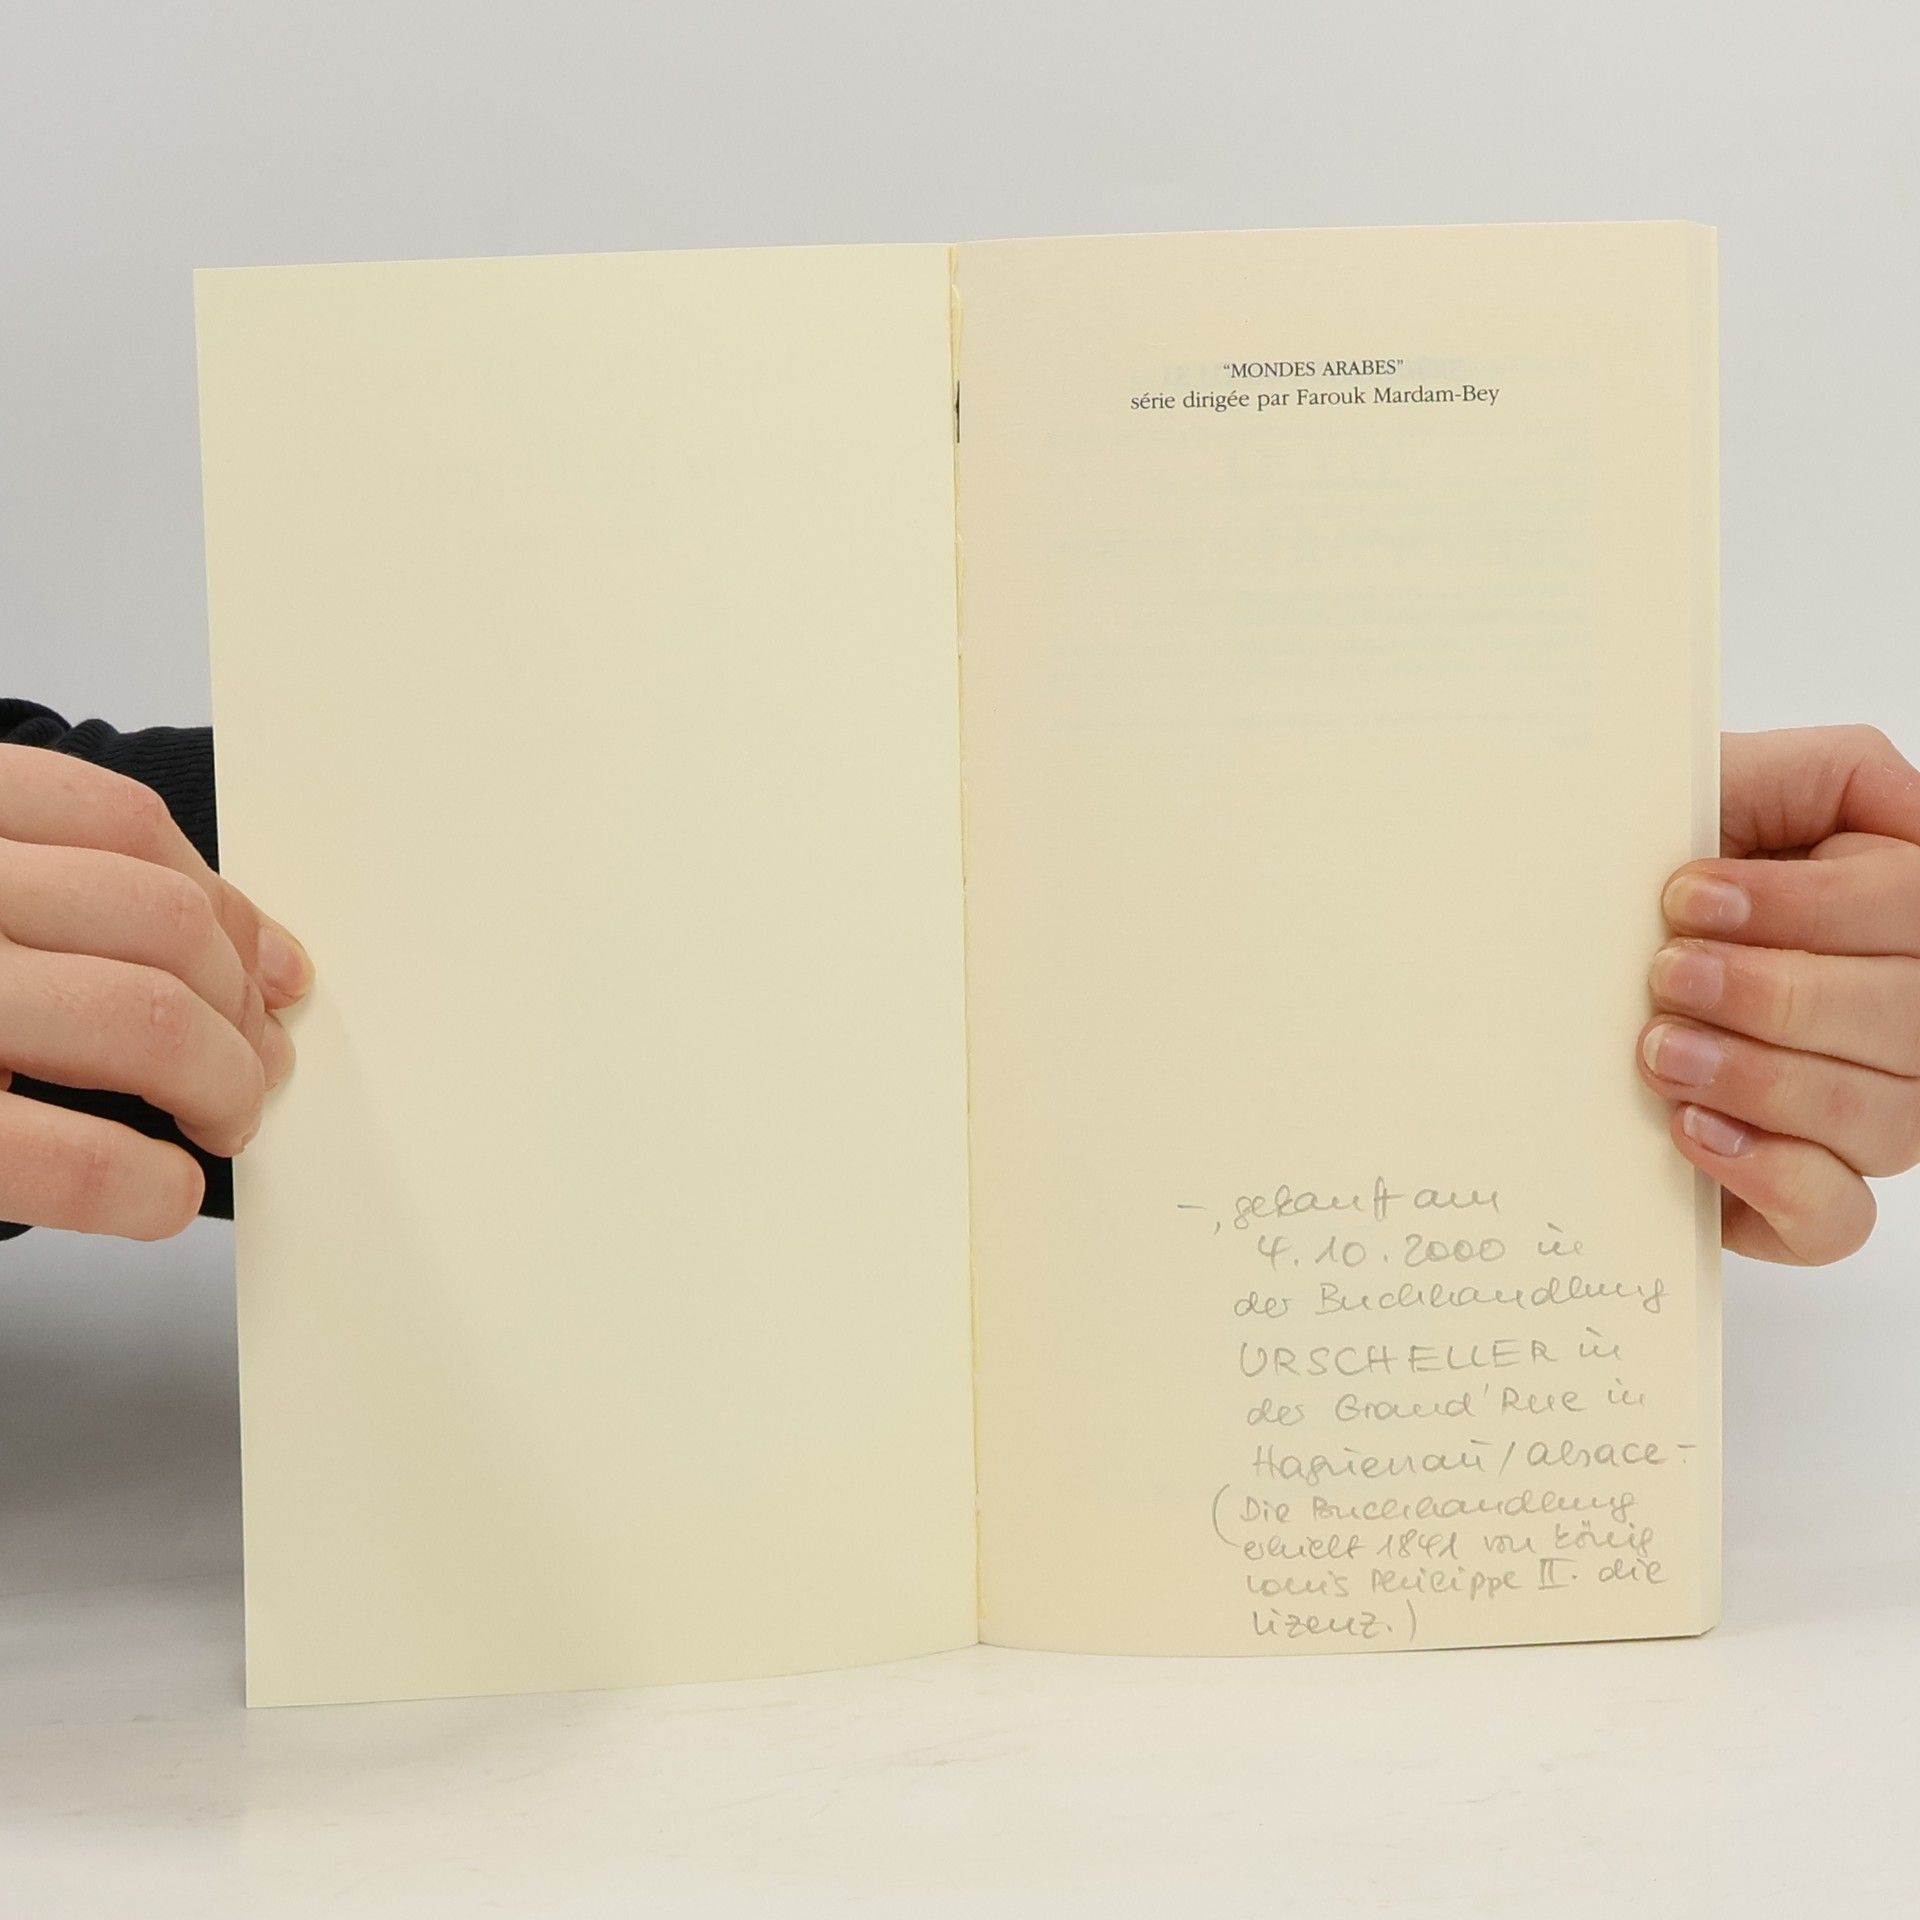 “MONDES ARABES”
série dirigée par Farouk Mardam-Bey
–, gekauft am
4.10.2000 in
der Buchhandlung
URSCHELLER in
der Grand'Rue in
Haguenau/Alsace–
(Die Buchhandlung
erhielt 1841 von König
Louis Philippe II. die
Lizenz.)